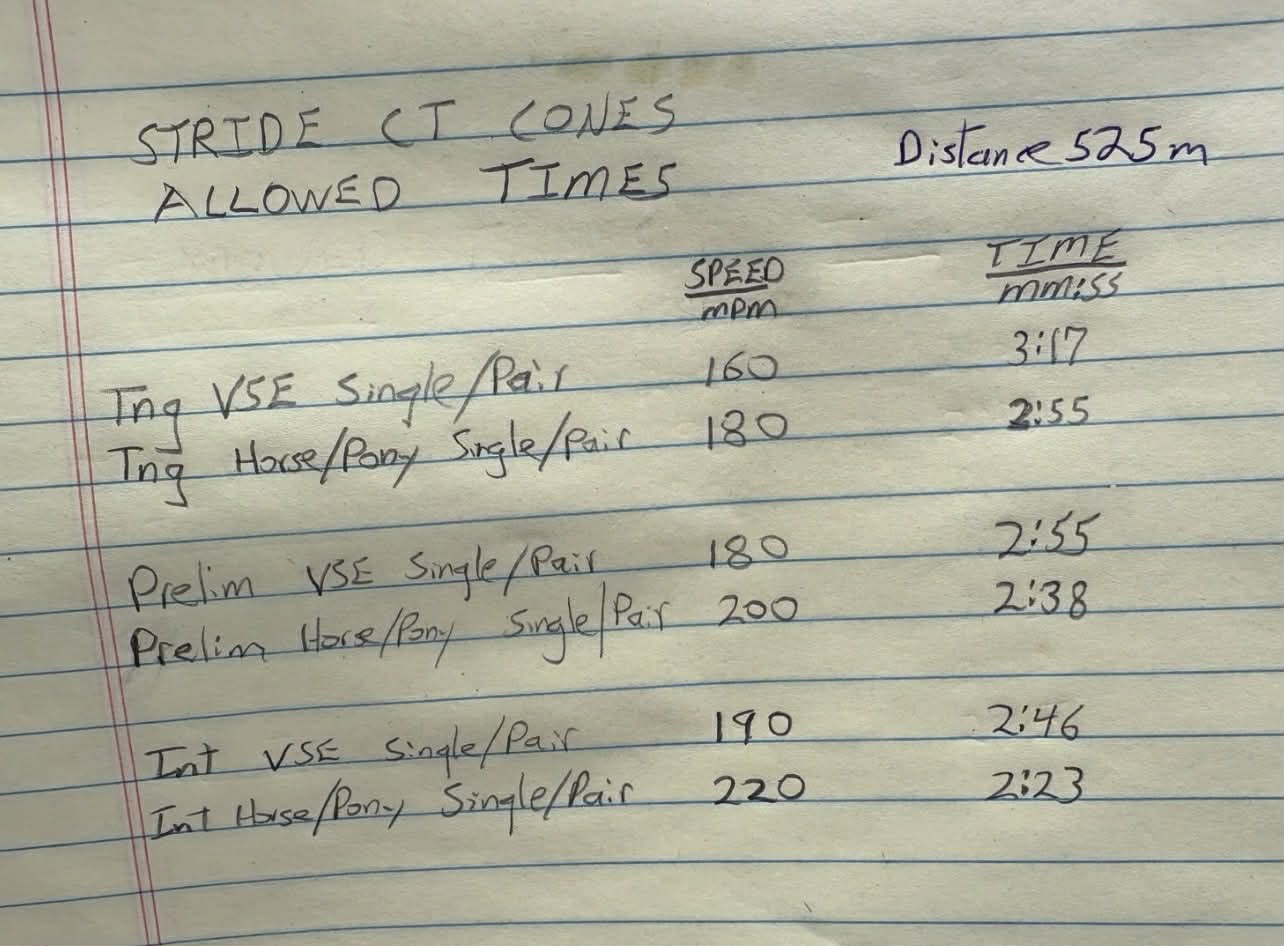 STRIDE CT CONES
ALLOWED TIMES
Distance 525m
SPEED TIME
mpm mm:ss
Tng VSE Single/Pair 160 3:17
Tng Horse/Pony Single/Pair 180 2:55
Prelim VSE Single/Pair 180 2:55
Prelim Horse/Pony Single/Pair 200 2:38
Int VSE Single/Pair 190 2:46
Int Horse/Pony Single/Pair 220 2:23